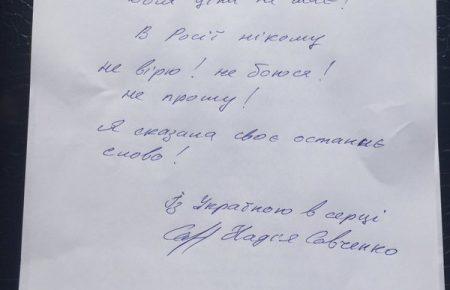 ціни не має!
В Росії нікому
не вірю! не боюся!
не прошу!
Я сказала своє останнє
слово!
Із Україною в серці
Надія Савченко